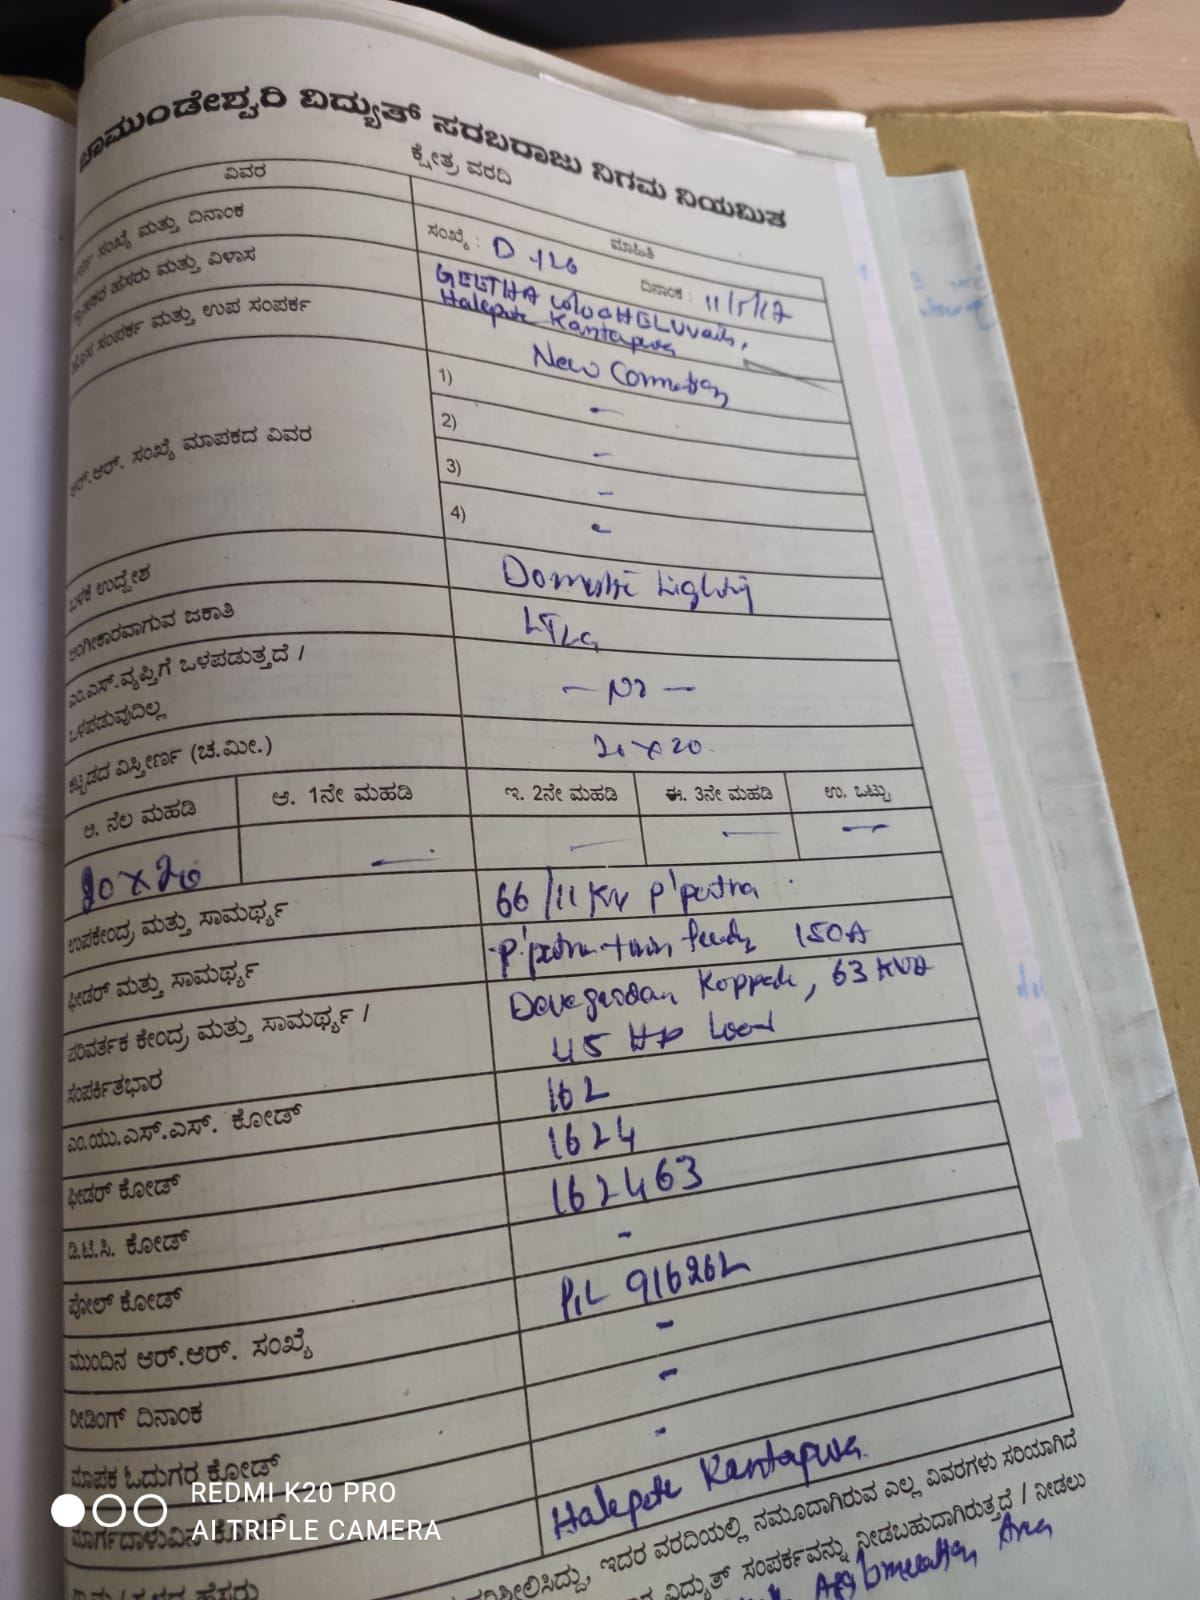 ಚಾಮುಂಡೇಶ್ವರಿ ವಿದ್ಯುತ್ ಸರಬರಾಜು ನಿಗಮ ನಿಯಮಿತ
ಕ್ಷೇತ್ರ ವರದಿ
ವಿವರ ಮಾಹಿತಿ
ಸಂಖ್ಯೆ ಮತ್ತು ದಿನಾಂಕ ಸಂಖ್ಯೆ : D 426 ದಿನಾಂಕ : 11/5/17
ಹೆಸರು ಮತ್ತು ವಿಳಾಸ GEETHA w/o
Halepete Kantapura
ಹೊಸ ಸಂಪರ್ಕ ಮತ್ತು ಉಪ ಸಂಪರ್ಕ New Connection
ಆರ್.ಆರ್. ಸಂಖ್ಯೆ ಮಾಪಕದ ವಿವರ 1) -
2) -
3) -
4) -
ಬಳಕೆ ಉದ್ದೇಶ Domestic Lighting
ಅಂಗೀಕಾರವಾಗುವ ಜಕಾತಿ
ಎಂ.ಎಸ್.ವ್ಯಪ್ತಿಗೆ ಒಳಪಡುತ್ತದೆ /
ಒಳಪಡುವುದಿಲ್ಲ - No -
ಕಟ್ಟಡದ ವಿಸ್ತೀರ್ಣ (ಚ.ಮೀ.) 20 x 20
ಅ. ನೆಲ ಮಹಡಿ ಆ. 1ನೇ ಮಹಡಿ ಇ. 2ನೇ ಮಹಡಿ ಈ. 3ನೇ ಮಹಡಿ ಉ. ಒಟ್ಟು
20 x 20 - - - -
ಉಪಕೇಂದ್ರ ಮತ್ತು ಸಾಮರ್ಥ್ಯ 66/11 KV P'patna
ಫೀಡರ್ ಮತ್ತು ಸಾಮರ್ಥ್ಯ 150A
ಪರಿವರ್ತಕ ಕೇಂದ್ರ ಮತ್ತು ಸಾಮರ್ಥ್ಯ / Koppalu, 63 KVA
ಸಂಪರ್ಕಿತಭಾರ 45 HP Load
ಎಂ.ಯು.ಎಸ್.ಎಸ್. ಕೋಡ್ 162
ಫೀಡರ್ ಕೋಡ್ 1624
ಡಿ.ಟಿ.ಸಿ. ಕೋಡ್ 162463
ಪೋಲ್ ಕೋಡ್ -
ಮುಂದಿನ ಆರ್.ಆರ್. ಸಂಖ್ಯೆ P1L 916262
ರೀಡಿಂಗ್ ದಿನಾಂಕ -
ಮಾಪಕ ಓದುಗರ ಕೋಡ್ -
-
Halepete Kantapura
ಇದರ ವರದಿಯಲ್ಲಿ ನಮೂದಾಗಿರುವ ಎಲ್ಲ ವಿವರಗಳು ಸರಿಯಾಗಿದೆ
ವಿದ್ಯುತ್ ಸಂಪರ್ಕವನ್ನು ನೀಡಬಹುದಾಗಿರುತ್ತದೆ / ನೀಡಲು
Area
REDMI K20 PRO
AI TRIPLE CAMERA